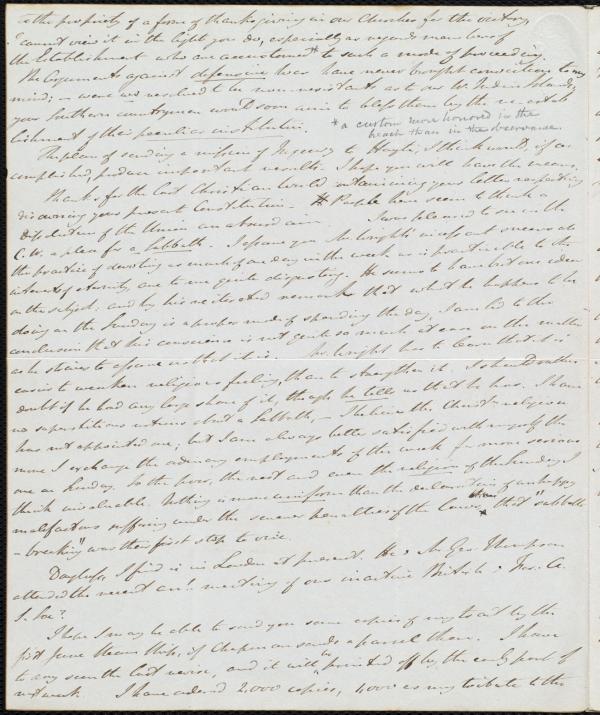 to the propriety of a form of thanksgiving in our Churches for the victory
I cannot view it in the light you do, especially as regards members of
the Establishment who are accustomed* to such a mode of proceeding.
The arguments against defensive wars have never brought conviction to my
mind; – were we resolved to be non-resistants as to our W. India Islands,
your Southern countrymen would soon aim to bless them by the re-estab
lishment of their peculiar institution.
* a custom more honored in the
breach than in the observance.
The plan of sending a mission of Inquiry to Hayti, I think would, if ac
complished, produce important results. I hope you will have the means.
Thanks for the last Christian World containing your letter respecting
disowning your present Constitution. People here seem to think a
Dissolution of the Union an absurd aim. I was pleased to see in the
C.W. a plea for a Sabbath. I assure you Mr. Wright's incessant sneers at
the practice of devoting as much of one day in the week as is practicable to the
interests of eternity are to me quite disgusting. He seems to have but one idea
on the subject, and by his reiterated remarks that what he happens to be
doing on the Sunday is a proper mode of spending the day, I am led to the
conclusion that his conscience is not quite so much at ease on the matter
as he desires to assure us that it is. Mr. Wright has to learn that it is
easier to weaken religious feeling, than to strengthen it. I should rather
doubt if he had any large share of it, though he tells us that he has. I have
no superstitious notions about a Sabbath, – I believe the Christn religion
has not appointed one; but I am always better satisfied with myself the
more I exchange the ordinary employments of the week for more serious
one on Sunday. To the poor, the rest and even the religion of the Sunday I
think invaluable. Nothing is more uniform than the declarations of unhappy
malefactors suffering under the severer penalties of the laws, than "that "sabbath
-breaking" was their first step to vice.
Douglass, I find is in London at present. He & Mr. Geo. Thompson
attended the recent annl meeting of our inactive British & For. A.
S. Soc?
I hope I may be able to send you some copies of my tract by the
first June steam ship, if Chapman sends a parcel then. I have
to day seen the last revise, and it will be printed off by the early part of
next week. I have ordered 2,000 copies, 1,000 as my tribute to the